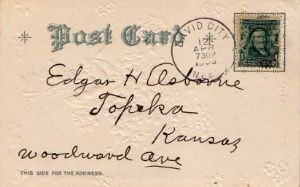 Post Card
DAVID CITY
12
APR
730P
NEB.
Edgar H Osborne
Topeka
Kansas
Woodward Ave
THIS SIDE FOR THE ADDRESS.